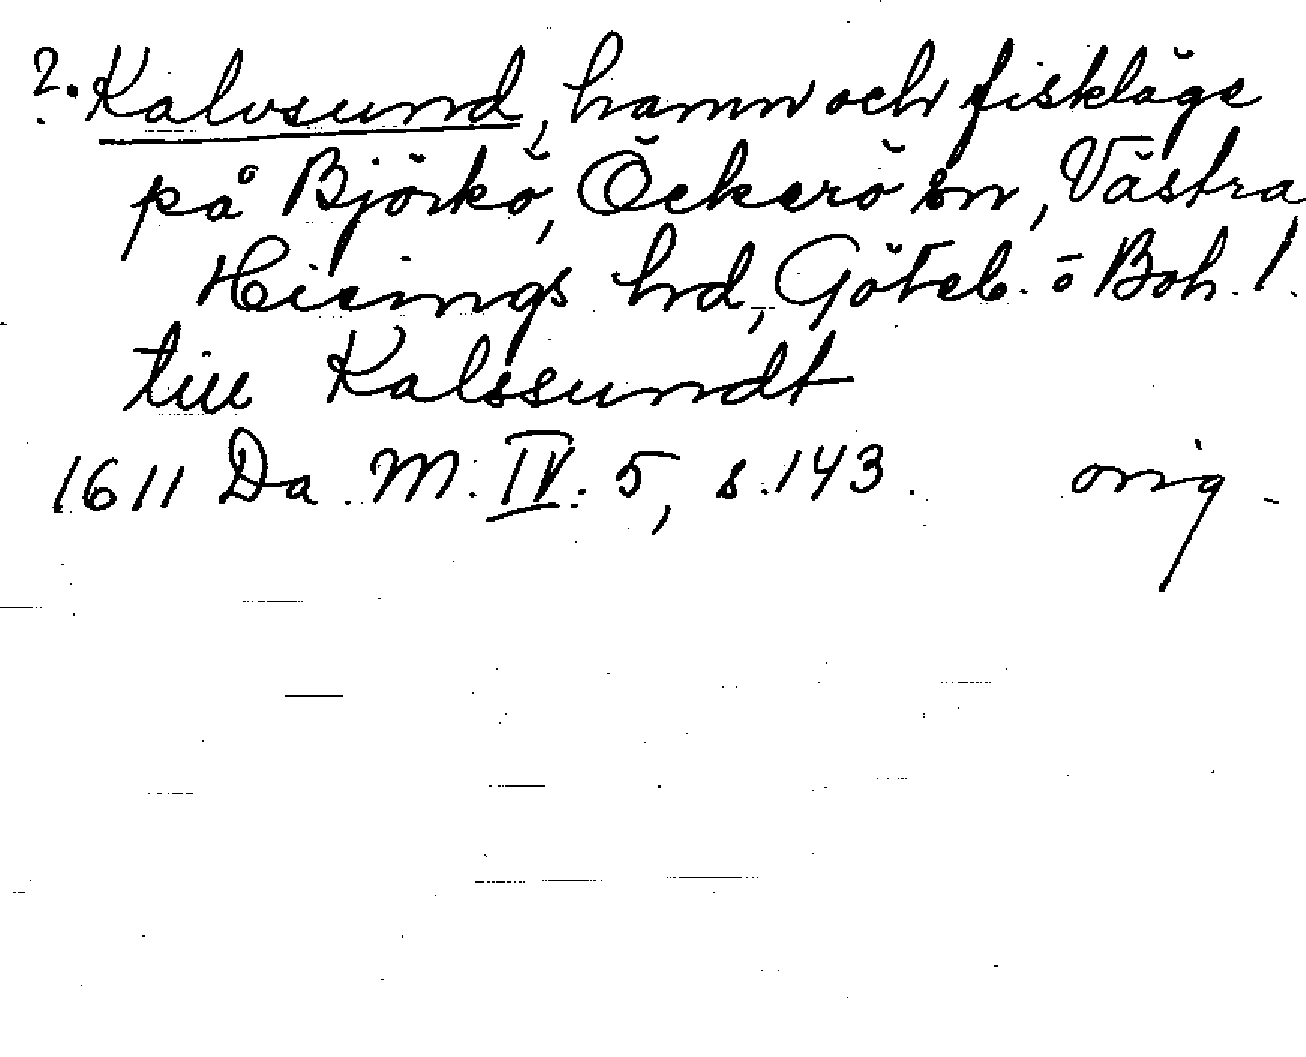 2. Kalvsund, hamn och fiskläge
på Björkö, Öckerö sn, Västra
Hisings hd, Göteb. o Boh. l.
till Kalssundt
1611 Da. M. IV. 5, s. 143. orig.